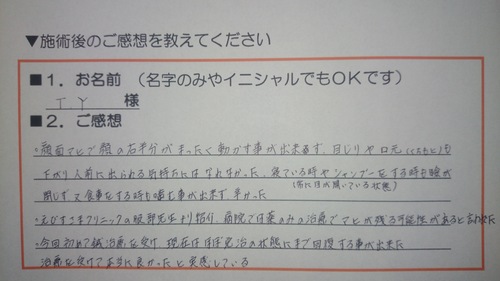 ▼施術後のご感想を教えてください
■1．お名前 （名字のみやイニシャルでもOKです）
I.Y 様
■2．ご感想
・顔面マヒで顔の右半分がまったく動かす事が出来るず、目じりや口元(くちもと)も
下がり人前に出られる気持ちにはなれなかった、寝ている時やシャンプーをする時も瞼が
(常に目が開いている状態)
閉じずで食事をする時も噛む事が出来ず辛かった。
・えびすこまクリニックの服部先生より紹介、病院では薬のみの治療でマヒが残る可能性があると言われた
・今回初めて鍼治療を受け 現在はほぼ完治の状態にまで回復する事が出来た
治療を受けて本当に良かったと実感している